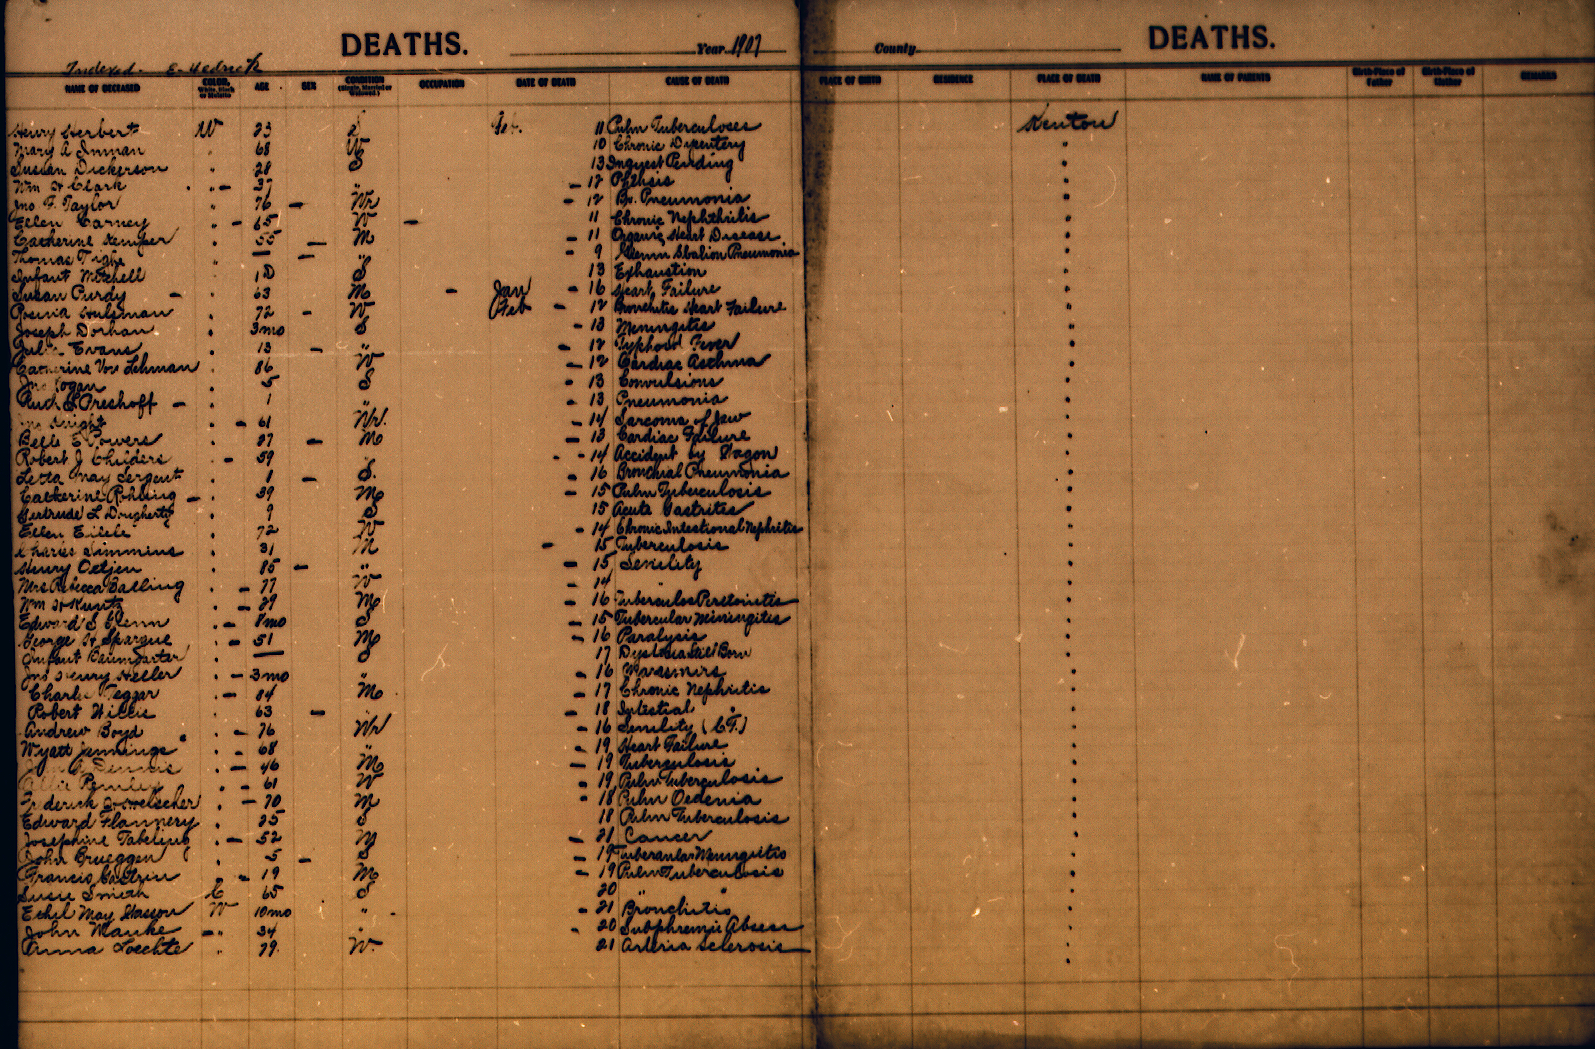 DEATHS. Year 1907 County DEATHS.
Indexed - E. Hedrick
NAME OF DECEASED COLOR, White, Black or Mulatto AGE SEX CONDITION (Single, Married or Widowed.) OCCUPATION DATE OF DEATH CAUSE OF DEATH PLACE OF BIRTH RESIDENCE PLACE OF DEATH NAME OF PARENTS Birth-Place of Father Birth-Place of Mother REMARKS
Henry Herbert W 23 S Feb. 11 Pulm Tuberculoses Kenton
Mary A Inman " 68 W 10 Chronic Dysentery "
Susan Dickerson " 28 S 13 Inquest Pending "
Wm H Clark " 37 " 12 Phthsis "
Jno F. Taylor " 76 Wr 12 Br. Pneumonia "
Ellen Carney " 65 W 11 Chronic Nephthritis "
Catherine Kemper " 55 M 11 Organic Heart Disease "
Thomas Tighe " — " 9 Pneumonia "
Infant Mitchell " 1D S 13 Exhaustion "
Susan Purdy " 63 M Jan 16 Heart Failure "
Hulsman " 72 W Feb 12 Bronchitis Heart Failure "
Joseph Dorhan " 3mo S 13 Meningitis "
Evans " 13 " 12 Typhoid Fever "
Catherine Von Lehman " 86 W 12 Cardiac Asthma "
Jno Hogan " 5 S 13 Convulsions "
Ruch S Preshoff " 1 " 13 Pneumonia "
Knight " 61 Wr. 14 Sarcoma of Jaw "
Belle E Powers " 37 M 13 Cardiac Failure "
Robert J Childers " 59 " 14 Accident by Wagon "
Letta May Sergent " 1 S. 16 Bronchial Pneumonia "
Catherine Rohling " 39 M 15 Pulm Tuberculosis "
Gertrude L Dougherty " 9 S 15 Acute Gastrites "
Ellen " 72 W 14 Chronic Intestional Nephritis "
Charles Simmins " 31 M 15 Tuberculosis "
Henry Oetjen " 85 " 15 Senility "
Mrs Rebecca Balling " 77 W 14 " "
Wm H Kuntz " 29 M 16 Tuberculos Peretonitis "
Edward S Glenn " 8mo S 15 Tubercular Miningites "
George H Sprague " 51 M 16 Paralysis "
Infant Baumgarter " — S 17 Born "
Jno Henry Heller " 3mo " 16 "
Teggar " 84 M 17 Chronic Nephritis "
Robert Willis " 63 " 18 Intestial "
Andrew Boyd " 76 Wr 16 Senility "
Wyatt Jennings " 68 " 19 Heart Failure "
Dennis " 46 M 19 Tuberculosis "
" 61 W 19 Pulm Tuberculosis "
Frederick " 70 M 18 Pulm Oedenia "
Edward Flannery " 25 S 18 Pulm Tuberculosis "
Josephine Tabeling " 52 M 21 Cancer "
John Brueggen " 5 S 19 Tubercular Meningitis "
Francis " 19 M 19 Pulm Tuberculosis "
Susie Smith C 65 S 20 " " "
Ethel May Slasson W 10mo " 21 Bronchitis "
John Manke " 34 " 20 Subphrenic Abcess "
Anna Loechte " 79 W. 21 Arteria Sclerosis "